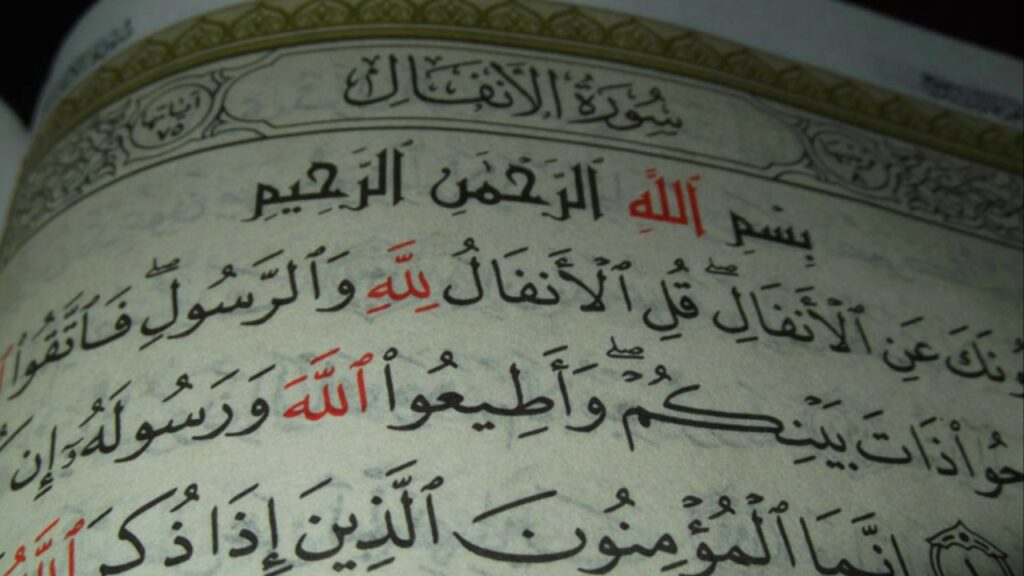 سُورَةُ الأَنفَالِ
آيَاتُهَا ٧٥
بِسْمِ ٱللَّهِ ٱلرَّحْمَٰنِ ٱلرَّحِيمِ
عَنِ ٱلْأَنفَالِۖ قُلِ ٱلْأَنفَالُ لِلَّهِ وَٱلرَّسُولِۖ فَٱتَّقُوا۟
ذَاتَ بَيْنِكُمْۖ وَأَطِيعُوا۟ ٱللَّهَ وَرَسُولَهُۥٓ إِن
١ إِنَّمَا ٱلْمُؤْمِنُونَ ٱلَّذِينَ إِذَا ذُكِرَ ٱللَّهُ